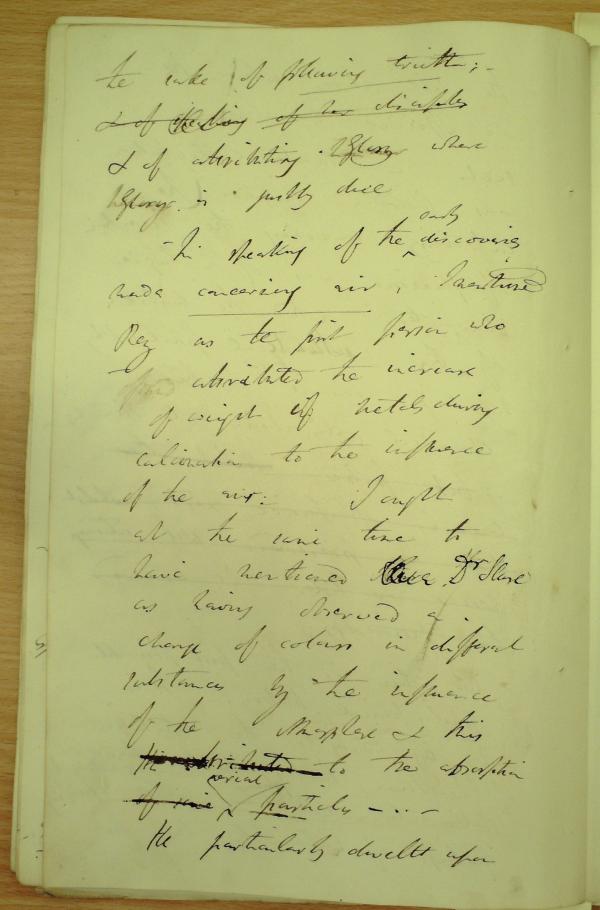 the sake of following truth; -
& of speaking of her disciples
& of attributing Glory where
Glory is justly due
- In speaking of the early discoveries
made concerning air, I mentioned
Rey as the first person who
attributed the increase
of weight of metals during
calcination to the influence
of the air: I ought
at the same time to
have mentioned Dr Slare
as having observed a
change of colours in different
substances by the influence
of the Atmosphere & this
He attributed to the absorption
of some aerial particles - - . -
He particularly dwells upon